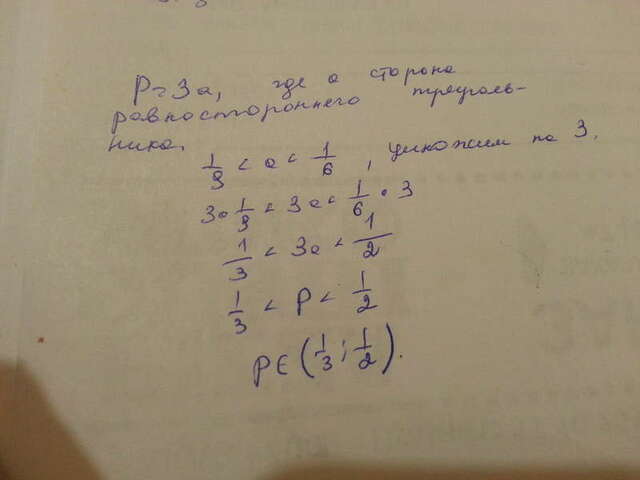 P = 3a, где a сторона
равностороннего треуголь-
ника.
1/9 < a < 1/6, умножим на 3.
3 • 1/9 < 3a < 1/6 • 3
1/3 < 3a < 1/2
1/3 < P < 1/2
P ∈ (1/3; 1/2).